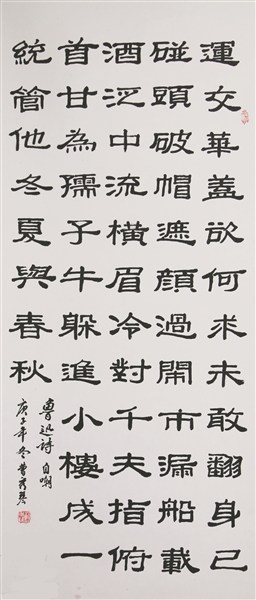 運交華蓋欲何求未敢翻身已
碰頭破帽遮顏過鬧市漏船載
酒泛中流橫眉冷對千夫指俯
首甘為孺子牛躲進小樓成一
統管他冬夏與春秋
魯迅詩自嘲
庚子年冬曹